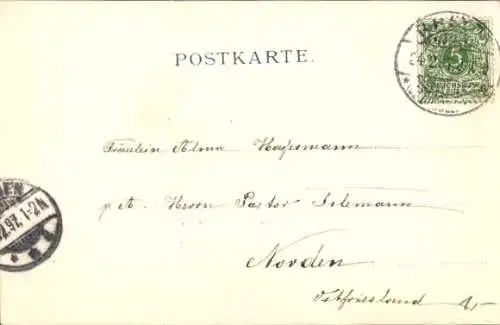 POSTKARTE.
5
Fräulein Alma Hafesmann
p. A. Herrn Pastor Silemann
Norden
Ostfriesland
97. 1-2N